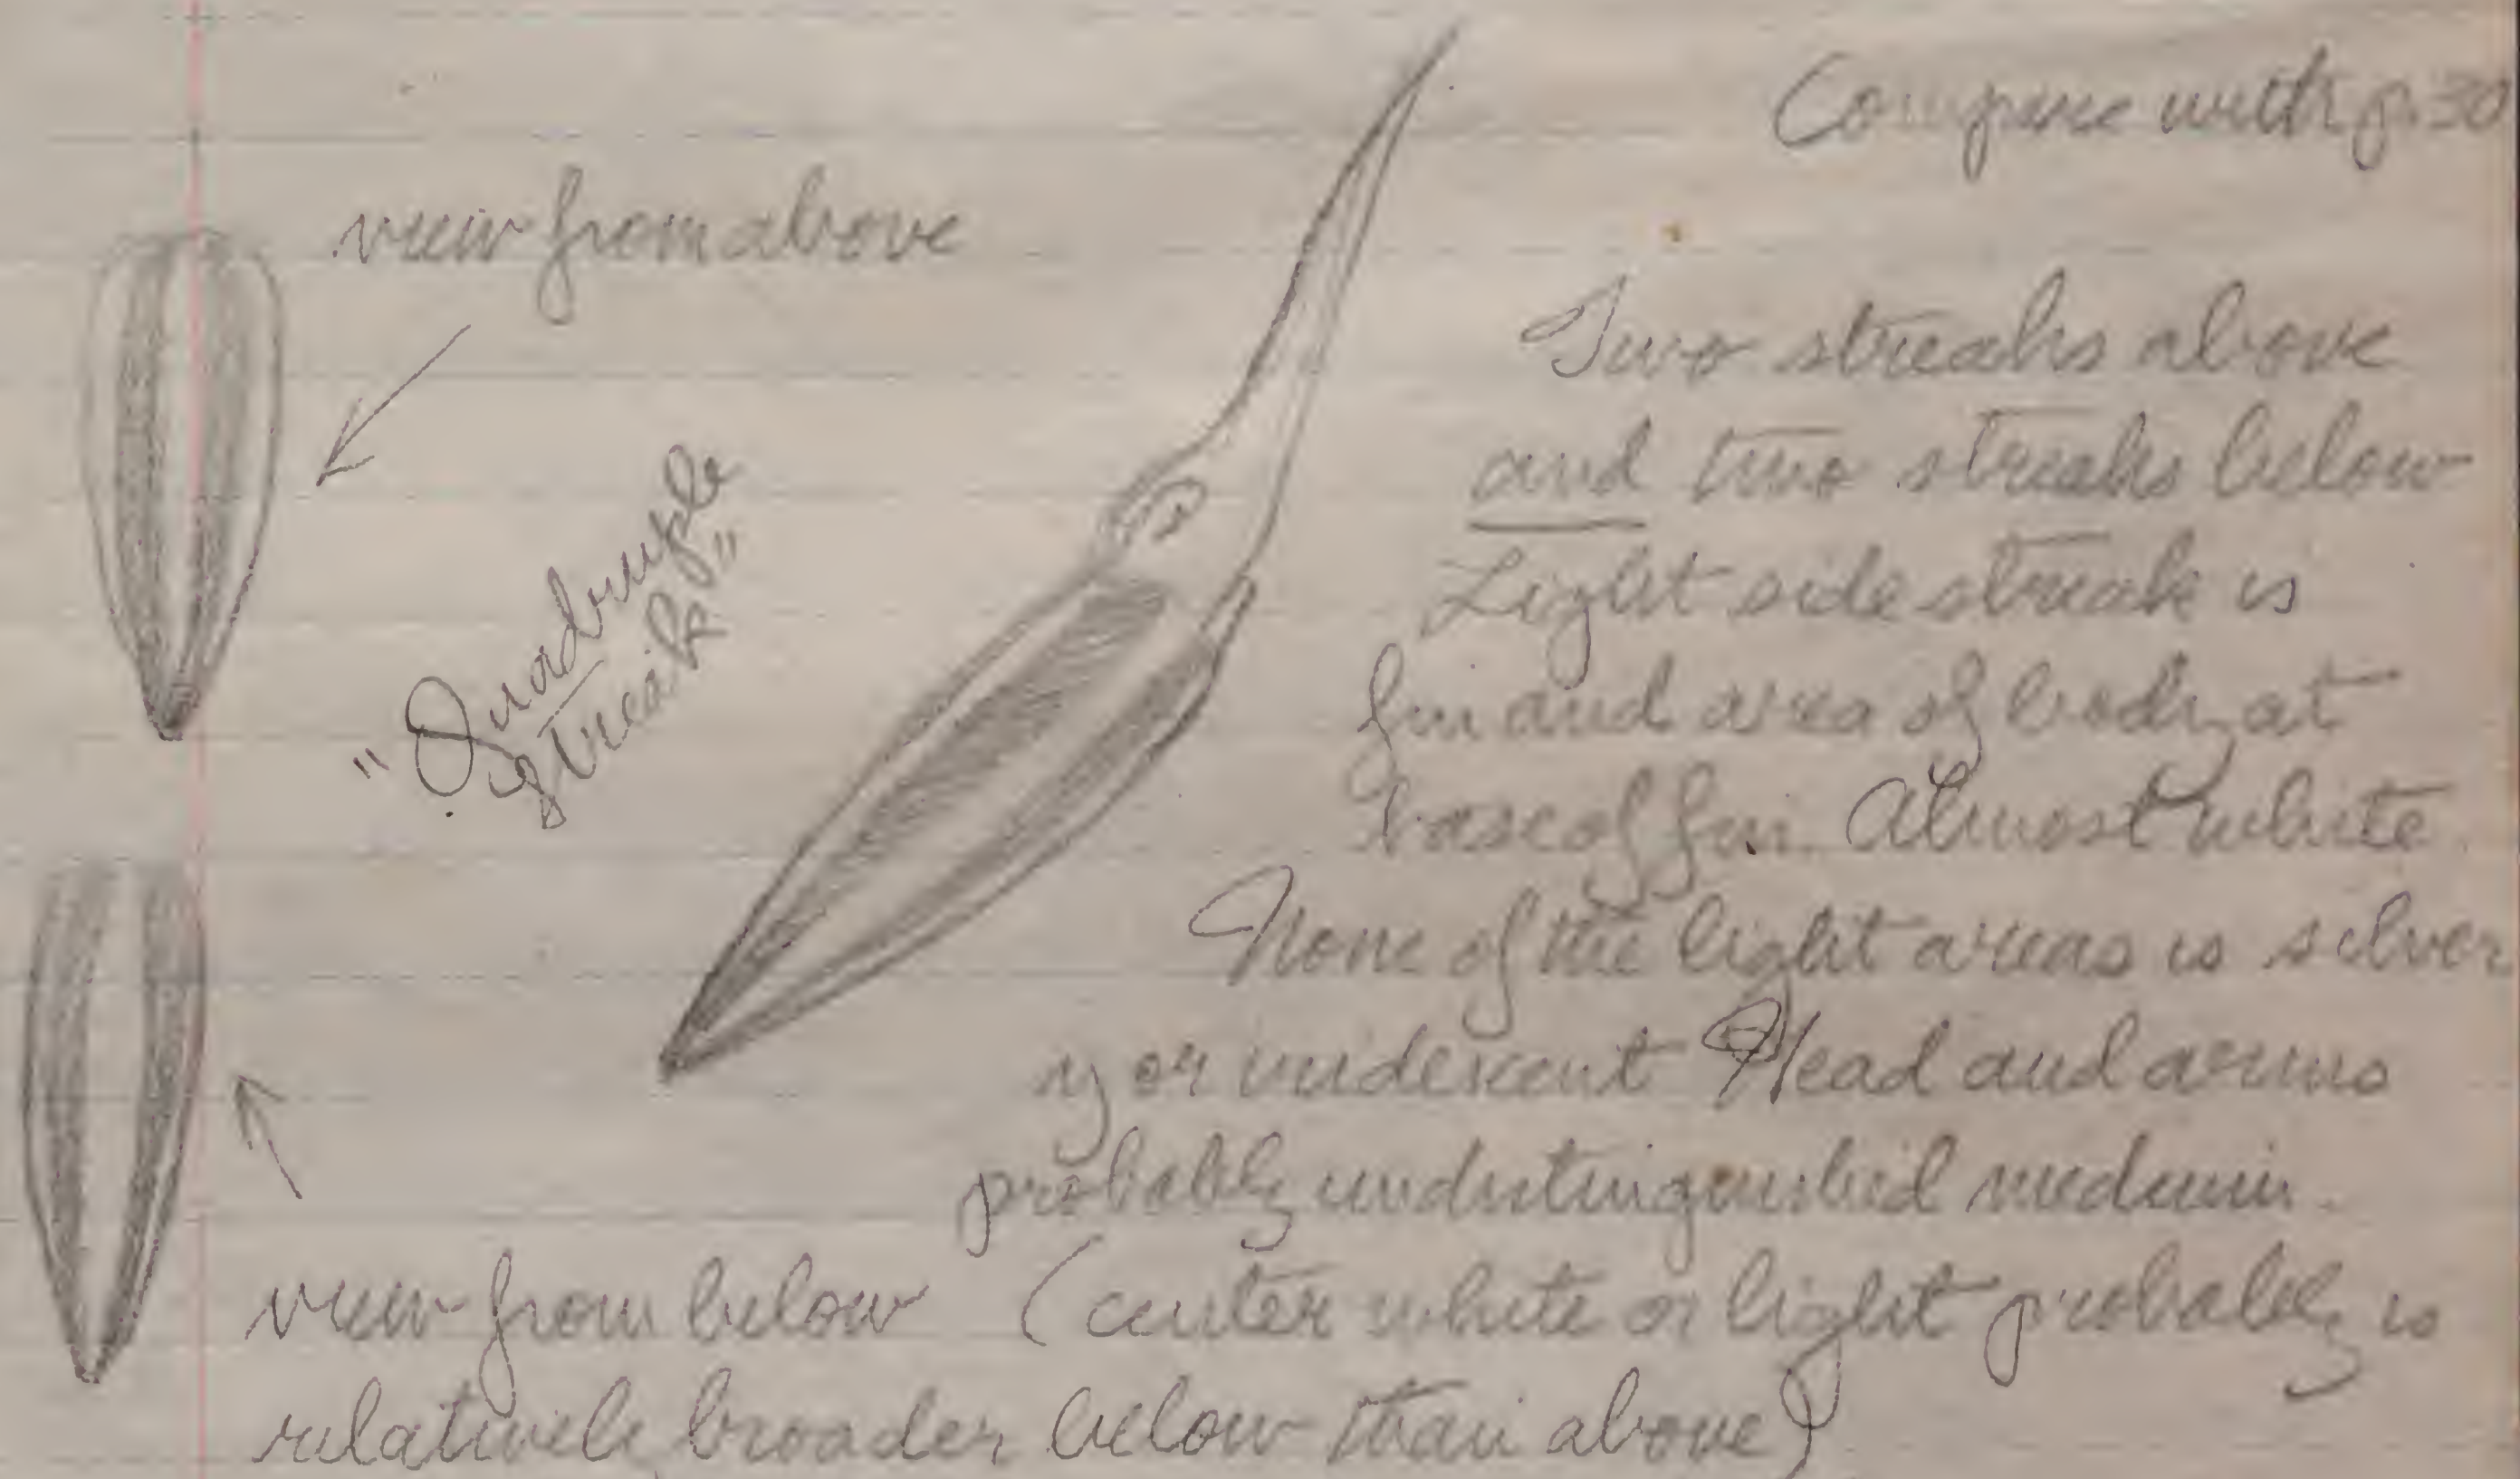 Compare with p. 30
view from above
"Quadruple
streaks"
Two streaks above
and two streaks below
Light side streak is
fin and area of body at
base of fin. Almost white
None of the light areas is silver
y or iridescent Head and arms
probably undistinguished medium.
view from below (center white or light probably is
relatively broader below than above)